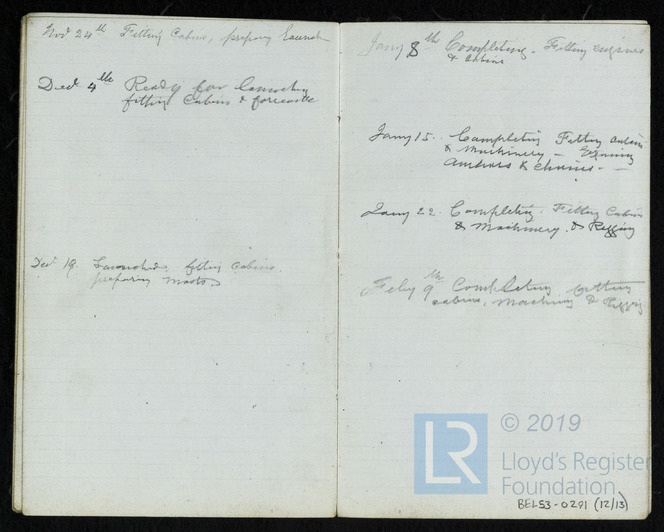 Nov 24th Fitting Cabins, preparing Launch
Decr 4th Ready for Launching
fitting Cabins & forecastle
Decr 18. Launched, fitting Cabins.
preparing Masts
Jany 8th Completing. Fitting engines
& Cabins
Jany 15. Completing Fitting Cabins
& Machinery —
Anchors & Chains —
Jany 22. Completing. Fitting Cabins
& Machinery. & Rigging
Feby 9th Completing fitting
cabins, Machinery & Rigging
LR
© 2019
Lloyd's Register
Foundation
BEL53-0291 (12/13)